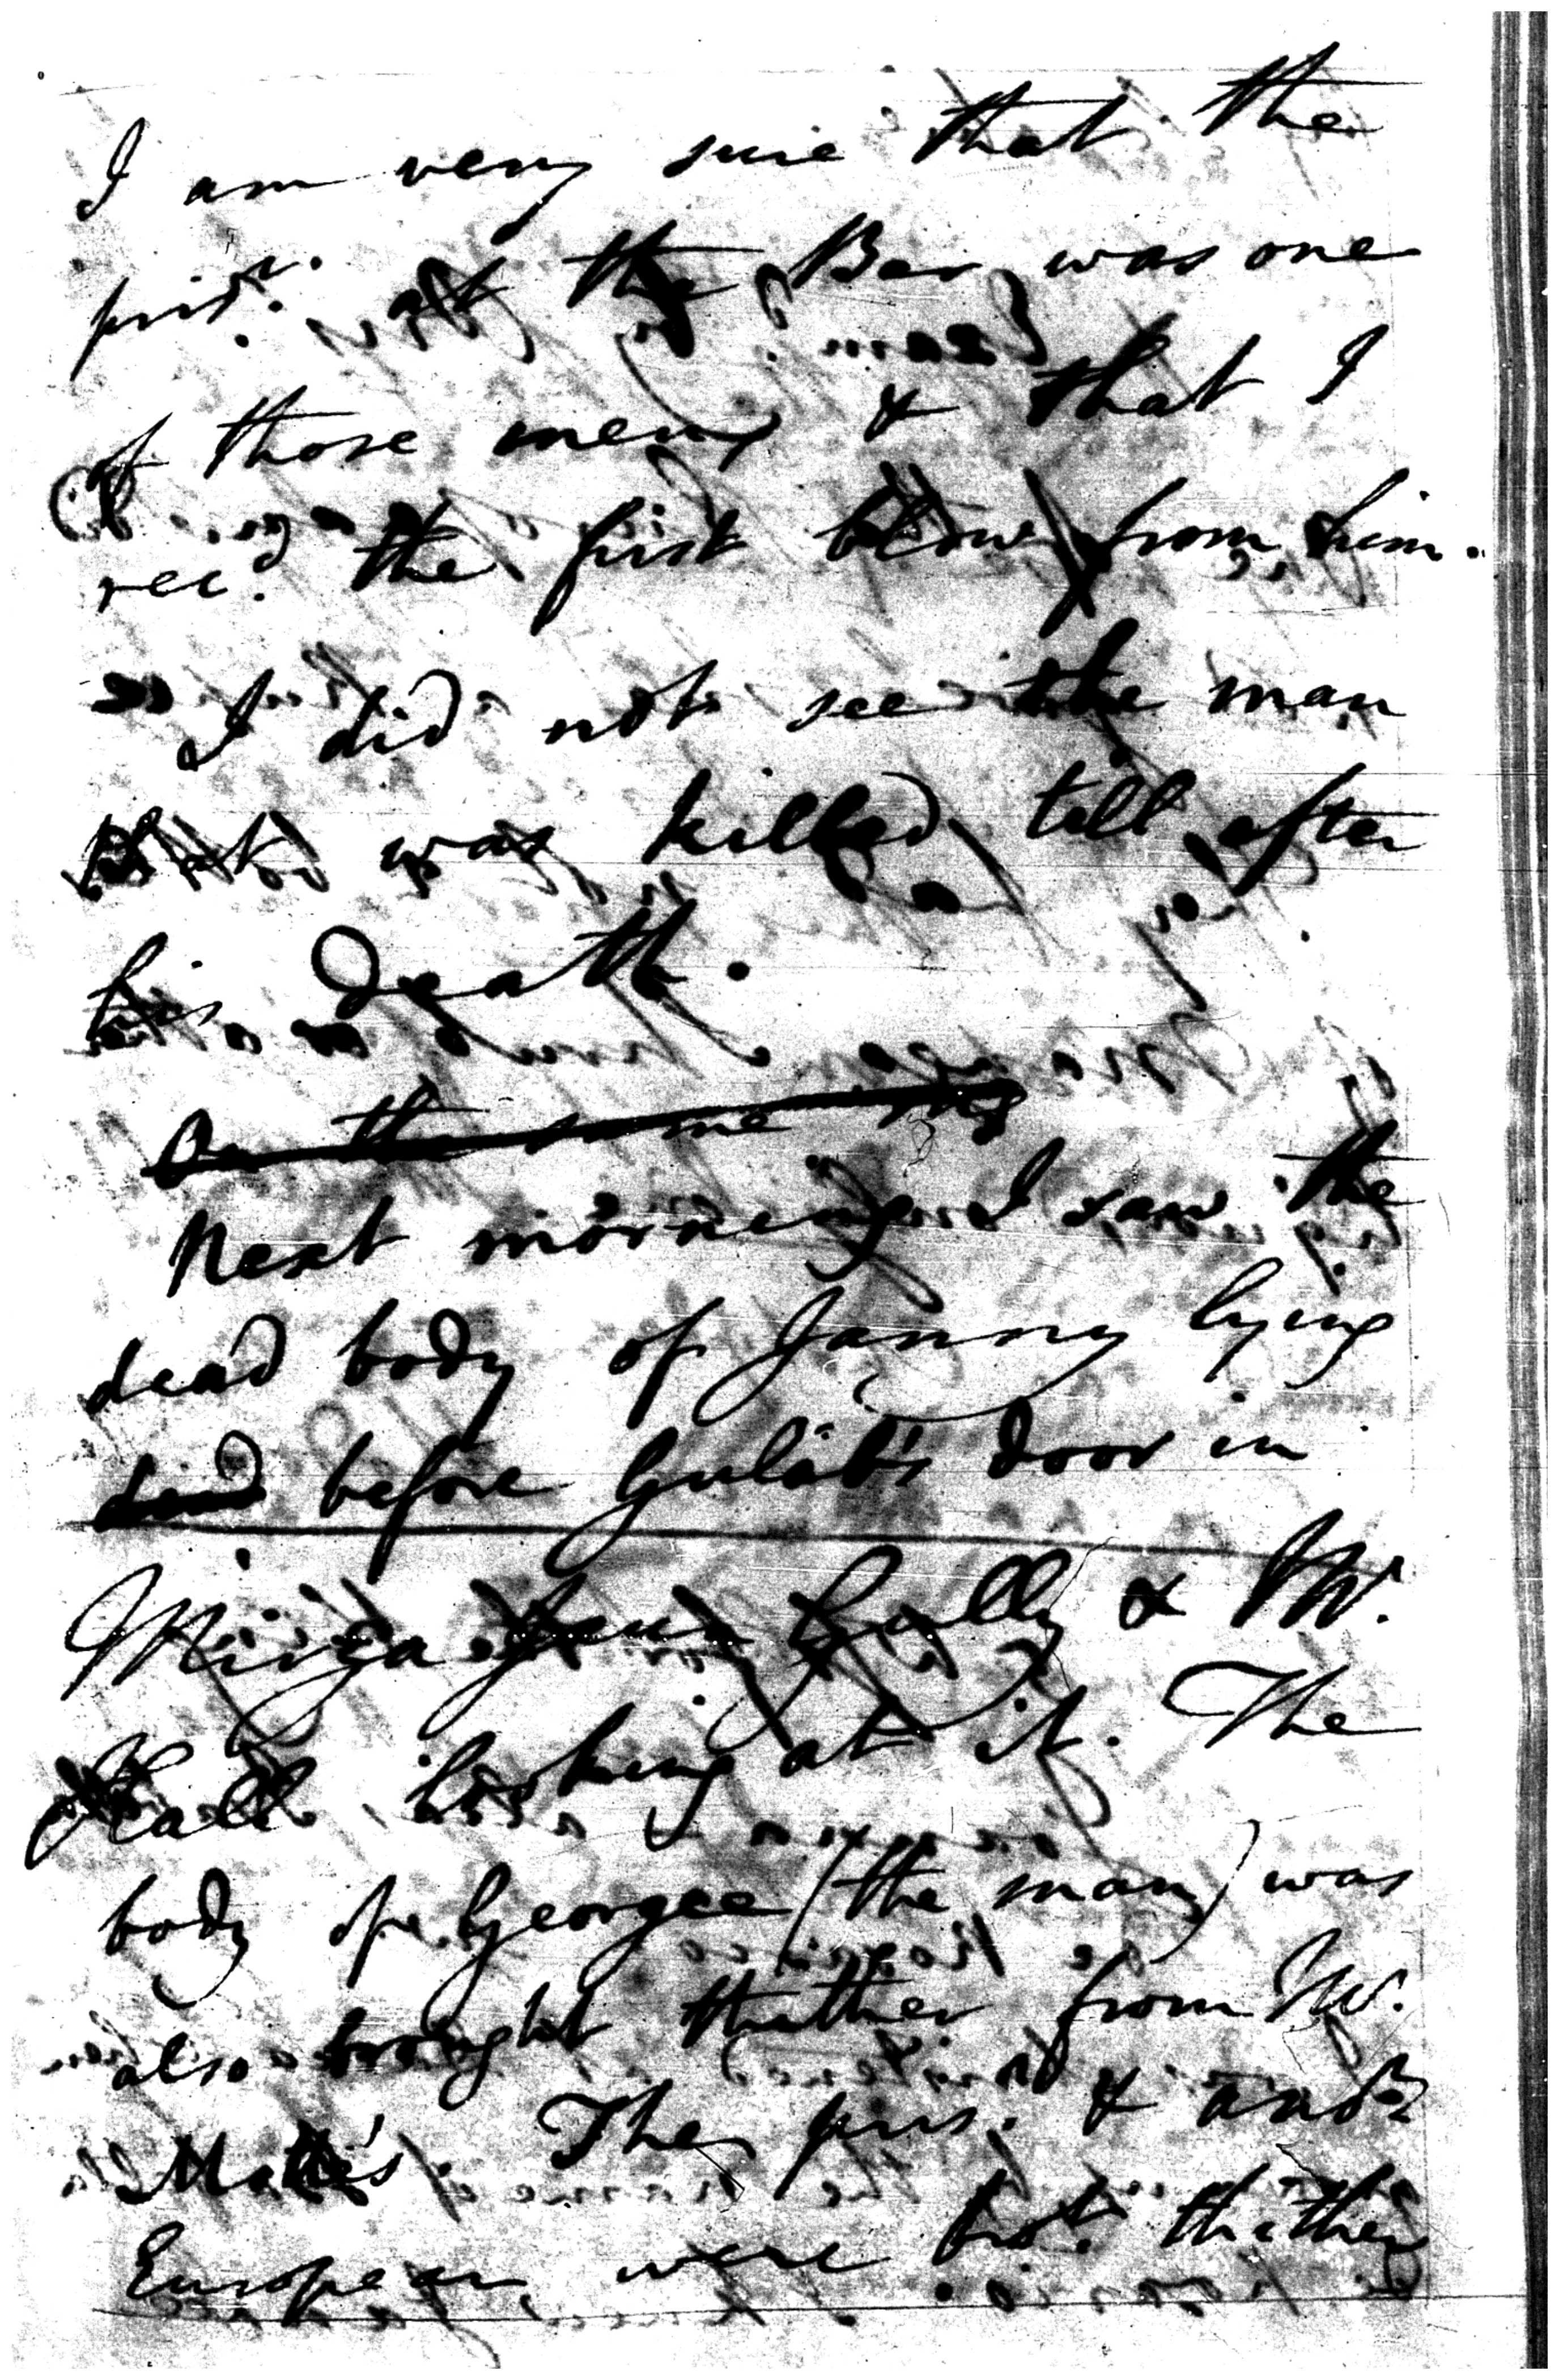 I am very sure that the
prisr. at the Bar was one
of those men & that I
recd. the first blow from him.
I did not see the man
that was killed till after
his death.
On the same
Next morning I saw the
dead body of Janny lying
dead before Gulab's door in
Mirza Gully & W.
Hall looking at it. The
body of Georgee (the man) was
also brought thither from W.
The pris. & anor
European were brot. thither